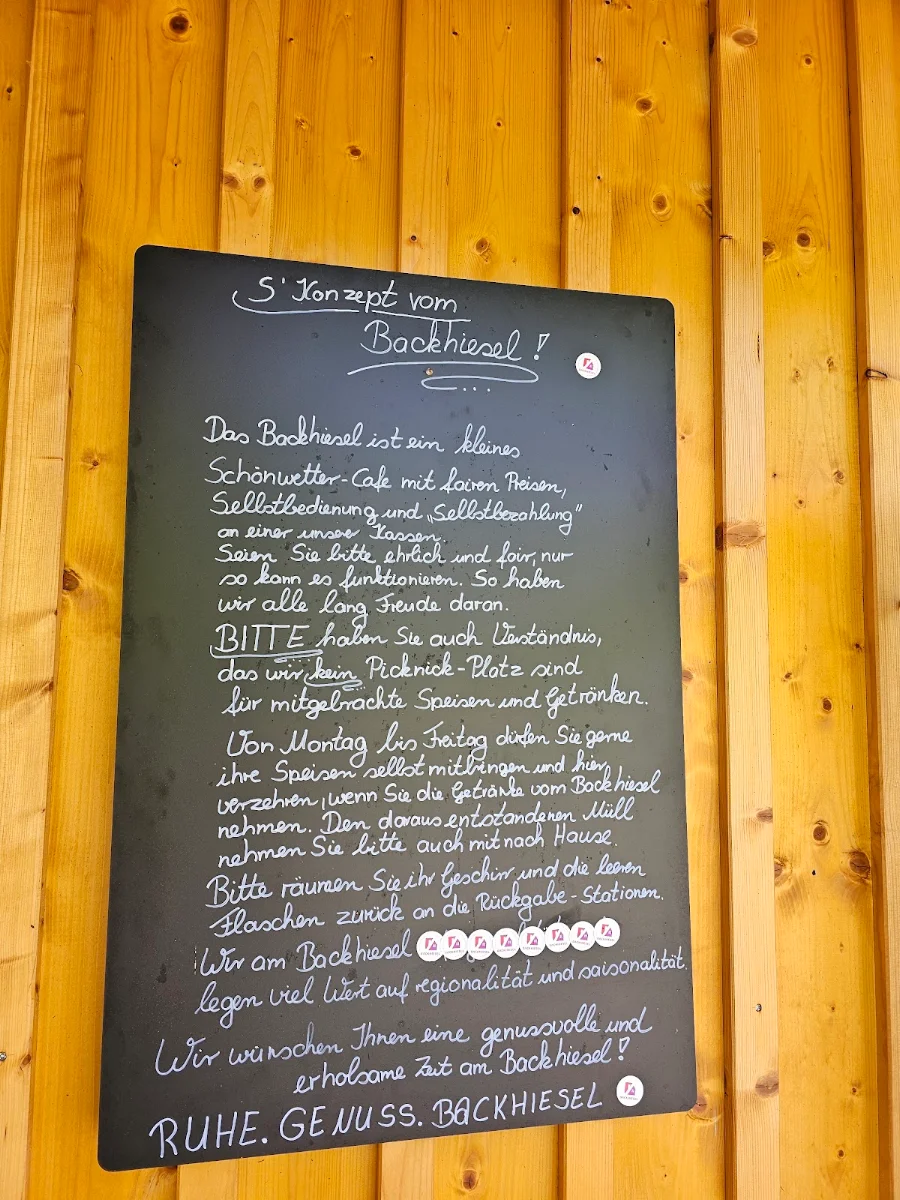 S' Konzept vom
Backhiesel!
Das Backhiesel ist ein kleines
Schönwetter-Cafe mit fairen Preisen,
Selbstbedienung und „Selbstbezahlung"
an einer unserer Kassen.
Seien Sie bitte ehrlich und fair, nur
so kann es funktionieren. So haben
wir alle lang Freude daran.
BITTE haben Sie auch Verständnis,
das wir kein Picknick-Platz sind
für mitgebrachte Speisen und Getränken.
Von Montag bis Freitag dürfen Sie gerne
ihre Speisen selbst mitbringen und hier
verzehren, wenn Sie die Getränke vom Backhiesel
nehmen. Den daraus entstandenen Müll
nehmen Sie bitte auch mit nach Hause.
Bitte räumen Sie ihr Geschirr und die leeren
Flaschen zurück an die Rückgabe-Stationen.
Wir am Backhiesel
legen viel Wert auf regionalität und saisonalität.
Wir wünschen Ihnen eine genussvolle und
erholsame Zeit am Backhiesel!
RUHE. GENUSS. BACKHIESEL